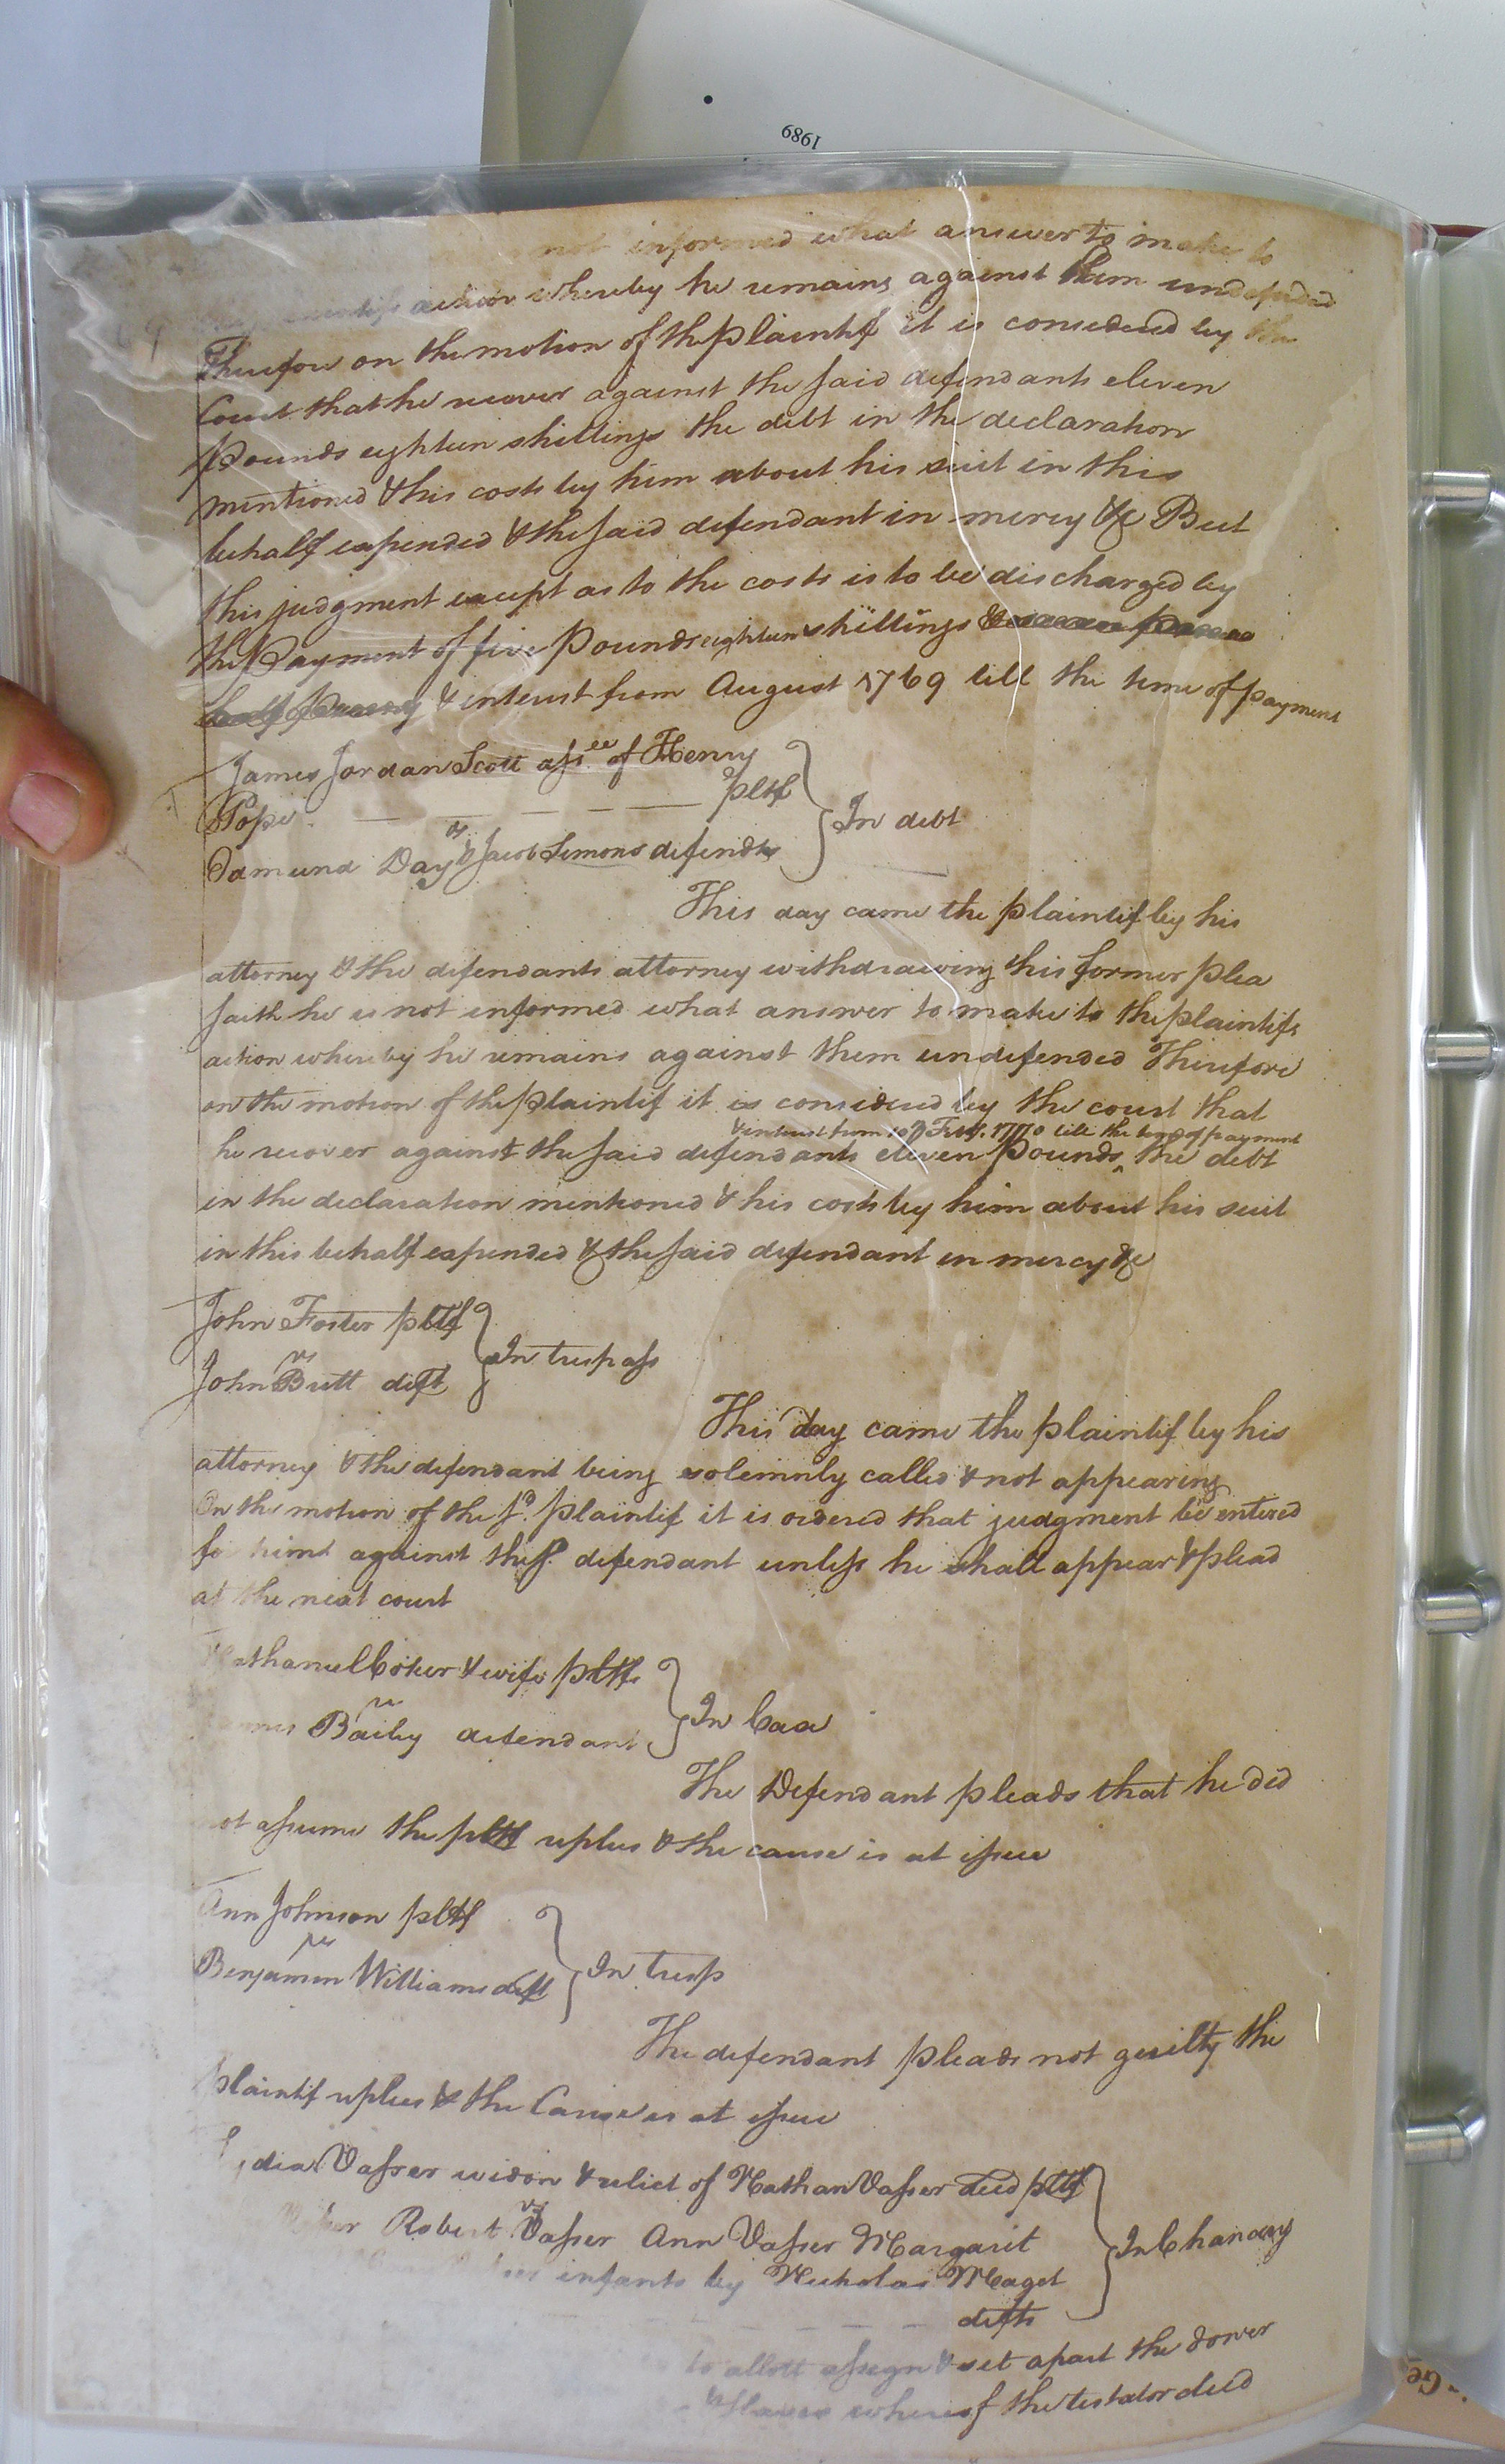 1989
not informed what answer to make to
action whereby he remains against them undefended
Therefore on the motion of the plaintif it is considered by the
Court that he recover against the said defendants eleven
pounds eighteen shillings the debt in the declaration
mentioned & his costs by him about his suit in this
behalf expended & the said defendant in mercy &c But
this judgment except as to the costs is to be discharged by
the Payment of five Pounds eighteen shillings
& interest from August 1769 till the time of payment
James Jordan Scott assee of Henry
Pope pltf
vs
Edmund Day & Jacob Simons defendts
In debt
This day came the plaintif by his
attorney & the defendants attorney withdrawing his former plea
saith he is not informed what answer to make to the plaintifs
action whereby he remains against them undefended Therefore
on the motion of the plaintif it is considered by the court that
& interest from 10th Feby. 1770 till the time of payment
he recover against the said defendants eleven Pounds ^ the debt
in the declaration mentioned & his costs by him about his suit
in this behalf expended & the said defendant in mercy &c
John Foster pltf
vs
John Butt deft
In trespass
This day came the plaintif by his
attorney & the defendant being solemnly called & not appearing
On the motion of the sd. plaintif it is ordered that judgment be entered
for him against the sd. defendant unless he shall appear & plead
at the next court
Nathaniel Coker & wife pltfs
vs
Baily defendant
In Case
The Defendant pleads that he did
not assume the pltf replies & the cause is at issue
Ann Johnson pltf
vs
Benjamin Williams deft
In tresp
The defendant pleads not guilty the
plaintif replies & the Cause is at issue
Lydia Vasser widow & relict of Nathan Vasser decd pltf
vs
Robert Vasser Ann Vasser Margarit
infants by Nicholas Maget
defts
In Chancery
to allott assign & set apart the dower
& slaves whereof the testator died